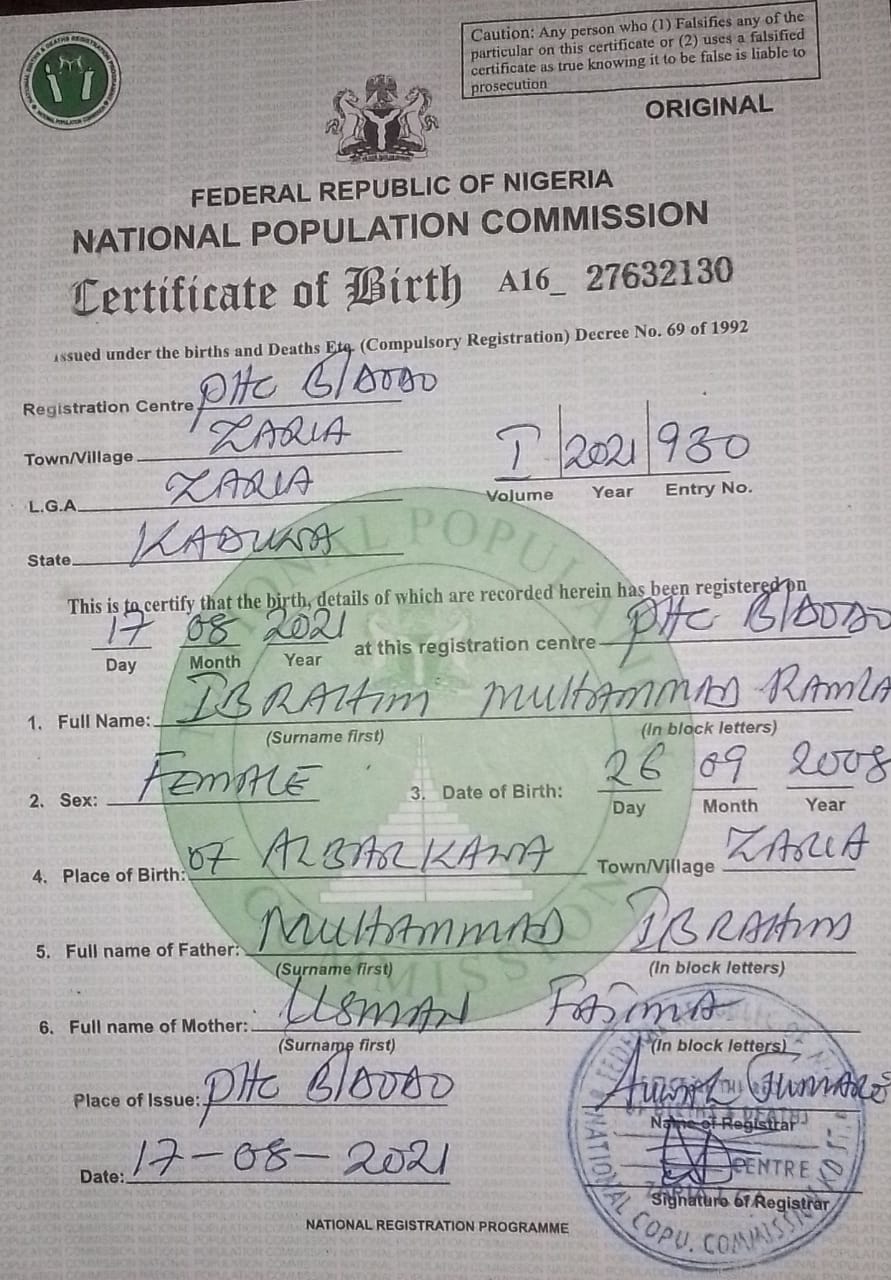 Caution: Any person who (1) Falsifies any of the
particular on this certificate or (2) uses a falsified
certificate as true knowing it to be false is liable to
prosecution
ORIGINAL
FEDERAL REPUBLIC OF NIGERIA
NATIONAL POPULATION COMMISSION
Certificate of Birth A16_ 27632130
issued under the births and Deaths Etc. (Compulsory Registration) Decree No. 69 of 1992
Registration Centre PHC B/DODO
Town/Village ZARIA
I 2021 930
Volume Year Entry No.
L.G.A. ZARIA
State KADUNA
This is to certify that the birth, details of which are recorded herein has been registered on
17 08 2021 at this registration centre PHC B/DODO
Day Month Year
1. Full Name: IBRAHIM MUHAMMAD RAMLA
(Surname first) (In block letters)
2. Sex: FEMALE 3. Date of Birth: 26 09 2008
Day Month Year
4. Place of Birth: 07 ALBARKAWA Town/Village ZARIA
5. Full name of Father: MUHAMMAD IBRAHIM
(Surname first) (In block letters)
6. Full name of Mother: USMAN FATIMA
(Surname first) (In block letters)
Place of Issue: PHC B/DODO
Name of Registrar
Date: 17-08-2021
CENTRE
Signature of Registrar
NATIONAL REGISTRATION PROGRAMME